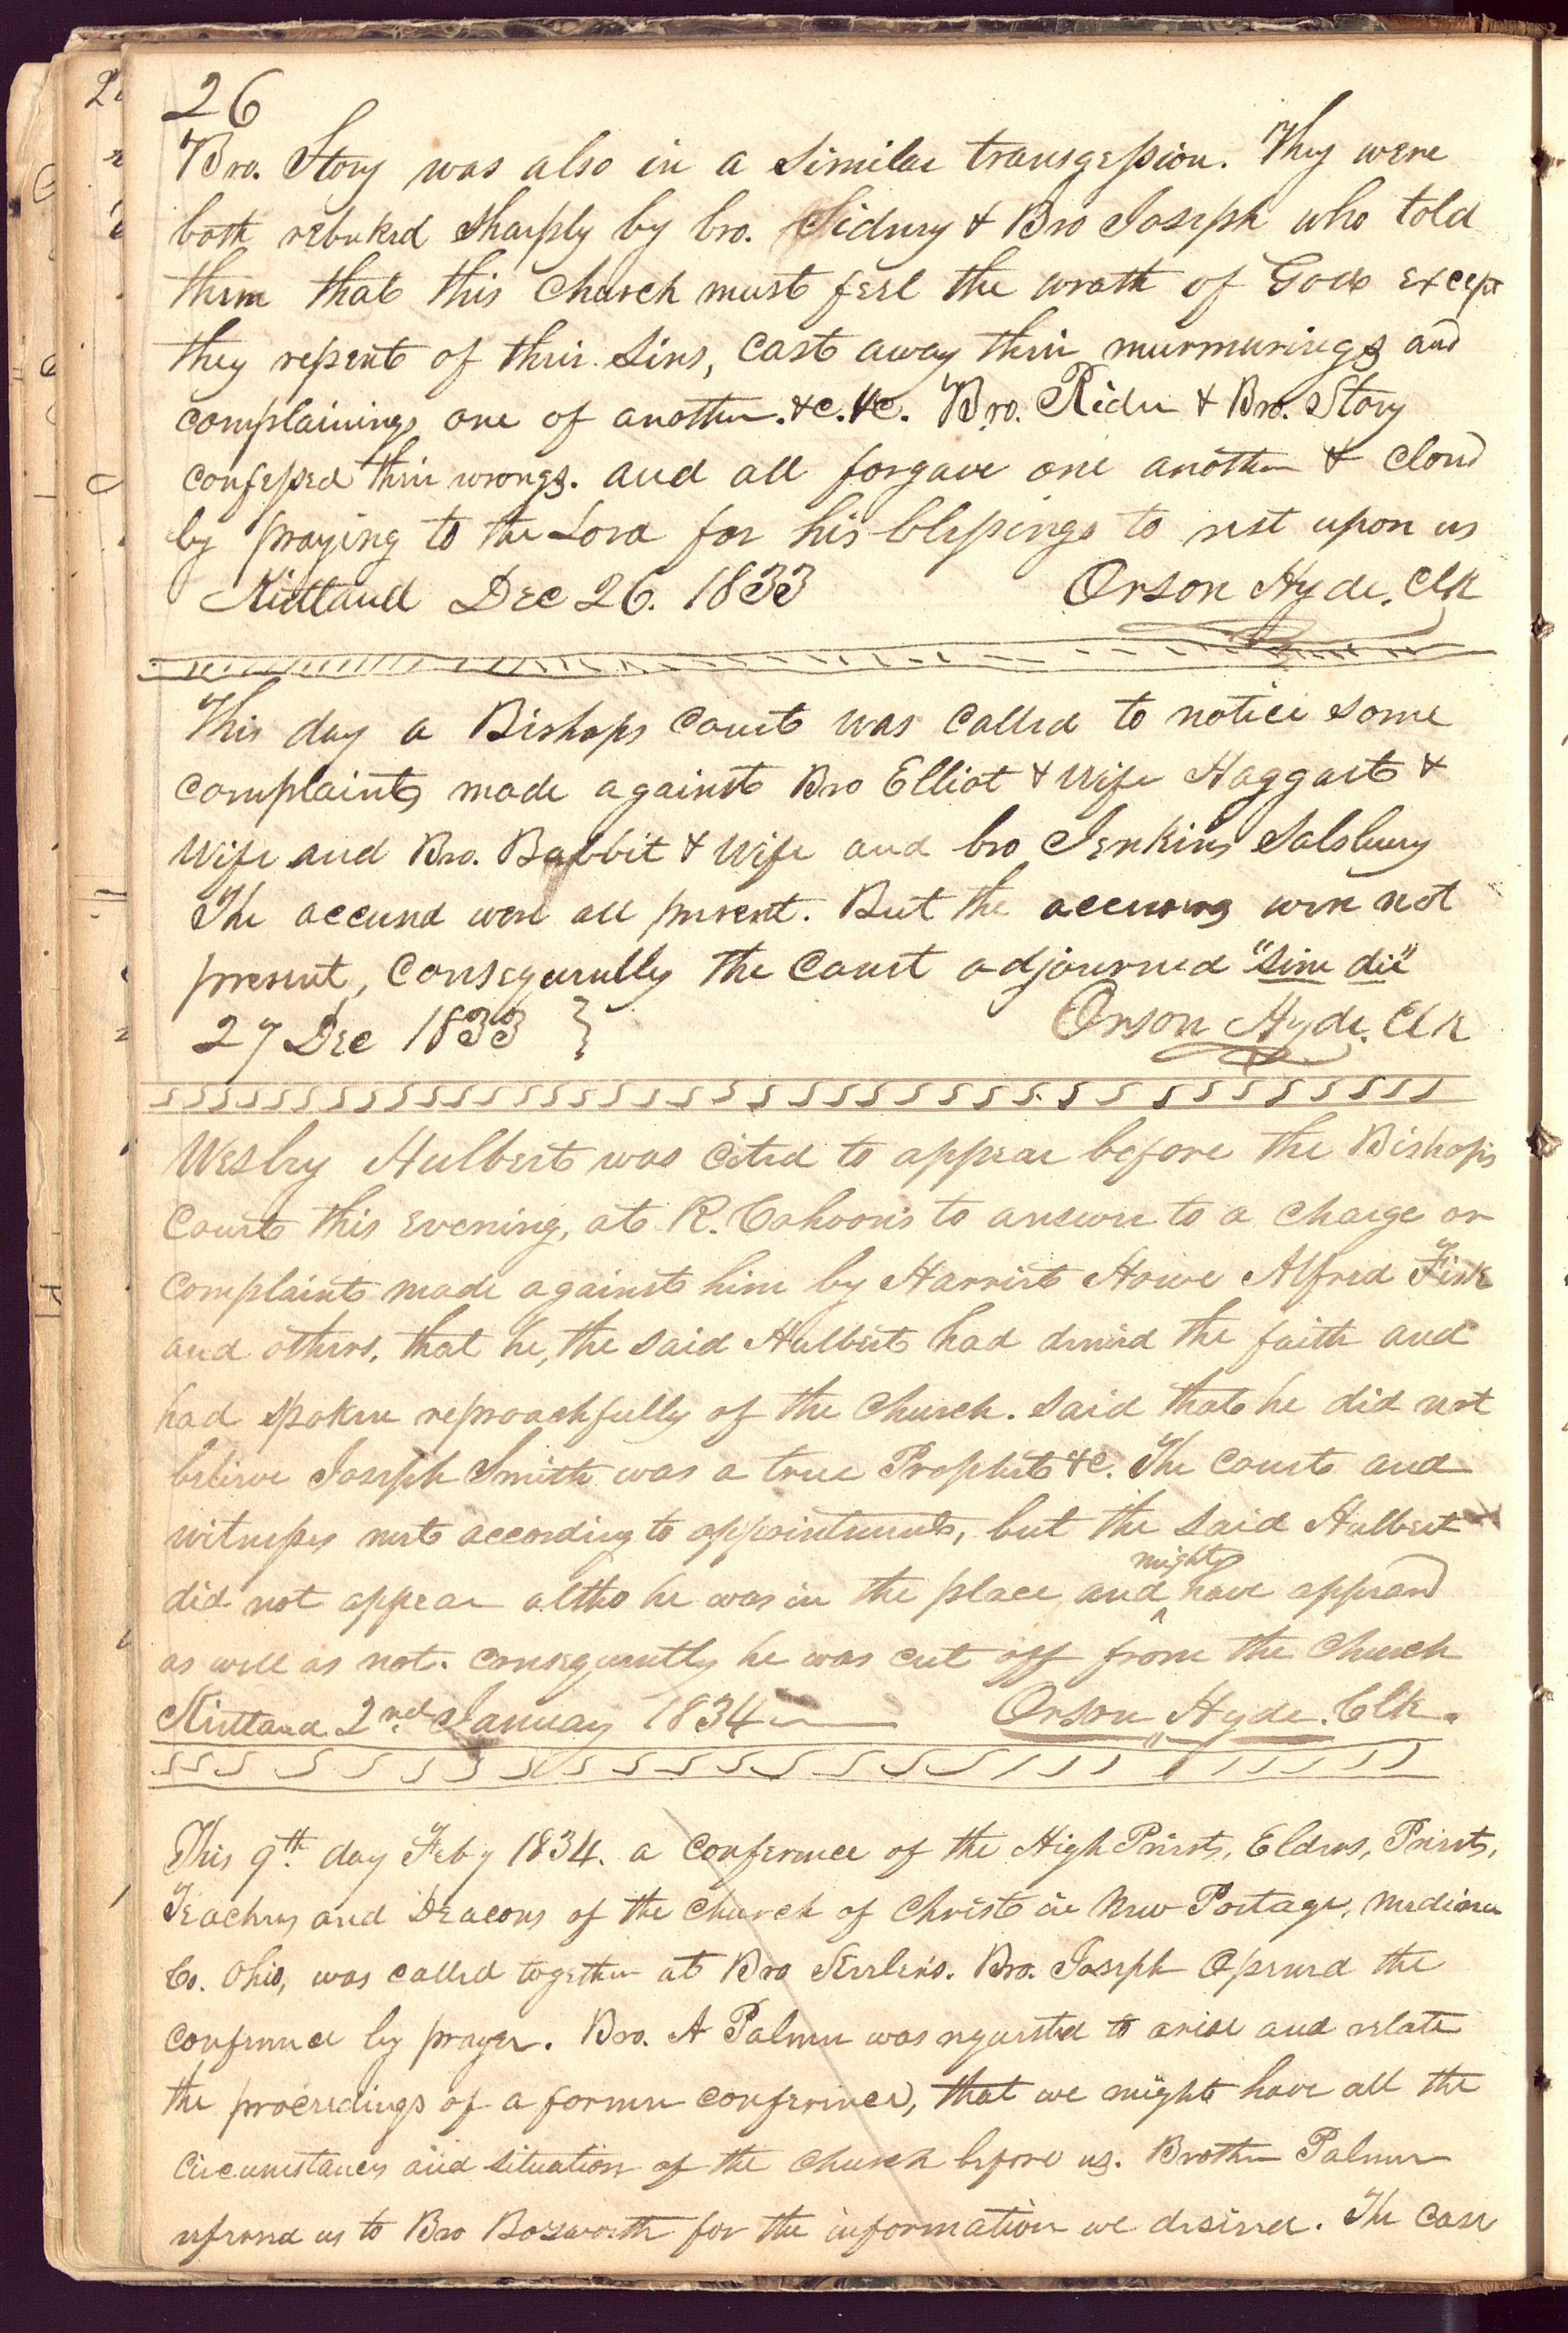 26
Bro. Story was also in a similar transgession. They were
both rebuked sharply by bro. Sidney & Bro Joseph who told
them that this Church must feel the wrath of God except
they repent of their sins, cast away their murmurings and
complainings one of another. &c. &c. Bro. Rider & Bro. Story
confessed their wrongs. and all forgave one another & closed
by praying to the Lord for his blessings to rest upon us
Kirtland Dec 26. 1833 Orson Hyde. Clk
This day a Bishops Court was called to notice some
complaints made against Bro Elliot & wife Haggart &
wife and Bro. Babbit & wife and bro Jenkins Salsbury
The accused were all present. But the accusers were not
present, Consequenlly the Court adjourned "sine die"
27 Dec 1833 } Orson Hyde. Clk
Wesley Hulbert was cited to appear before the Bishop's
Court this evening, at R. Cahoon's to answer to a charge or
complaint made against him by Harriet Howe Alfred Fisk
and others, that he, the said Hulbert had denied the faith and
had spoken reproachfully of the Church. said that he did not
believe Joseph Smith was a true Prophet &c. The Court and
witnesses met according to appointment, but the said Hulbert
did not appear altho he was in the place and ^might have appeared
as well as not. consequently he was cut off from the Church
Kirtland 2nd January 1834 Orson Hyde. Clk.
This 9th. day Feby 1834. a conference of the High Priests, Elders, Priests,
Teachers and Deacons of the Church of Christ in New Portage, Medina
Co. Ohio, was called together at Bro Kirlin's. Bro. Joseph Opened the
conference by prayer. Bro. A Palmer was requested to arise and relate
the proceedings of a former conference, that we might have all the
circumstances and situation of the church before us. Brother Palmer
referred us to Bro Bosworth for the information we desired. The case